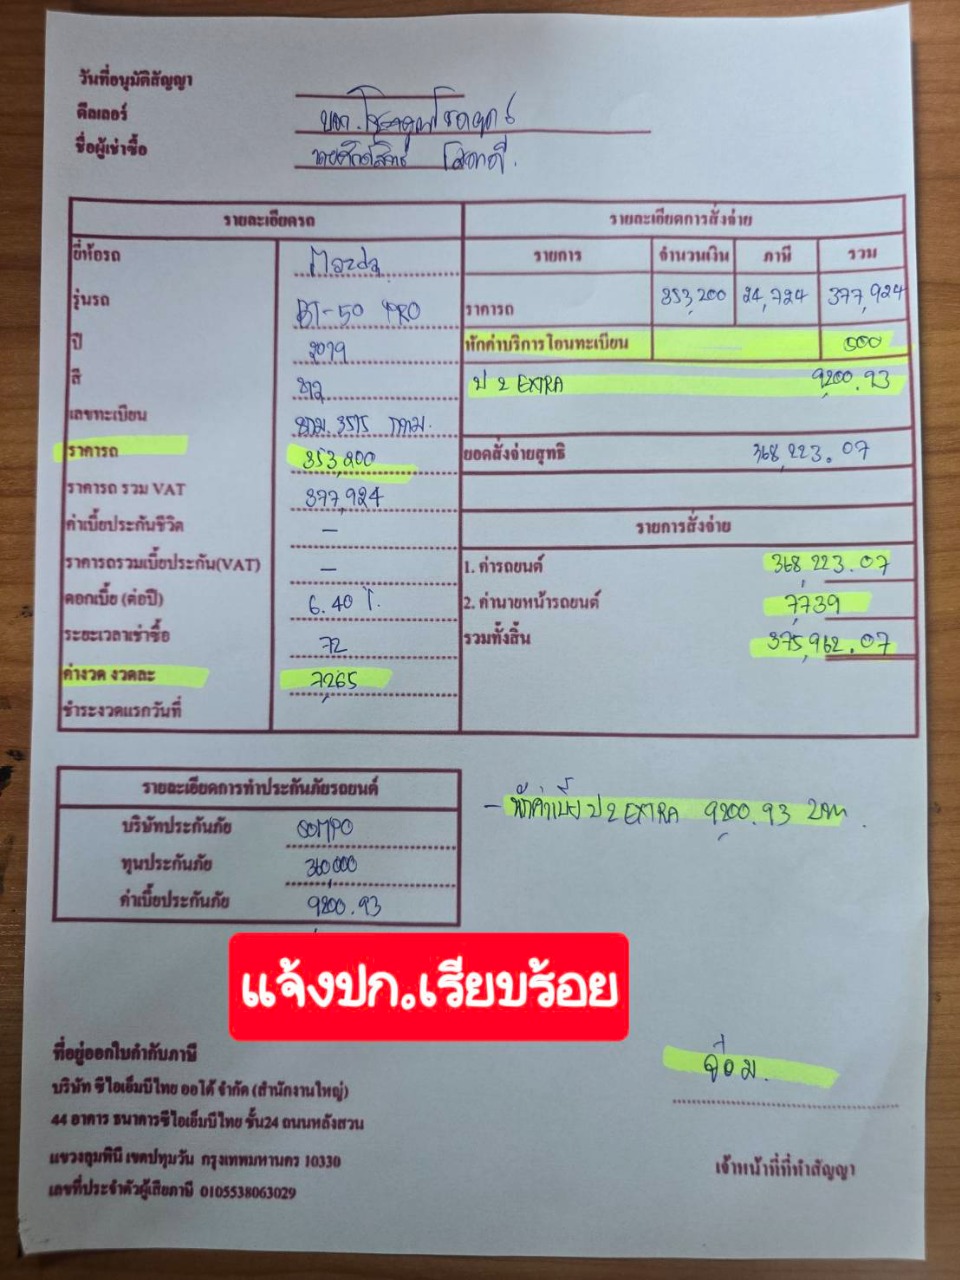 วันที่อนุมัติสัญญา
ดีลเลอร์ บจก.
ชื่อผู้เช่าซื้อ นายศักดิ์สิทธิ์ โสดาดี.
รายละเอียดรถ
ยี่ห้อรถ Mazda
รุ่นรถ BT-50 PRO
ปี 2019
สี ขาว
เลขทะเบียน 3515 กทม.
ราคารถ 353,200
ราคารถ รวม VAT 377,924
ค่าเบี้ยประกันชีวิต –
ราคารถรวมเบี้ยประกัน(VAT) –
ดอกเบี้ย (ต่อปี) 6.40 %
ระยะเวลาเช่าซื้อ 72
ค่างวด งวดละ 7,265
ชำระงวดแรกวันที่
รายละเอียดการสั่งจ่าย
รายการ จำนวนเงิน ภาษี รวม
ราคารถ 353,200 24,724 377,924
หักค่าบริการโอนทะเบียน 500
ป 2 EXTRA 9,200.93
ยอดสั่งจ่ายสุทธิ 368,223.07
รายการสั่งจ่าย
1. ค่ารถยนต์ 368,223.07
2. ค่านายหน้ารถยนต์ 7,739
รวมทั้งสิ้น 375,962.07
รายละเอียดการทำประกันภัยรถยนต์
บริษัทประกันภัย SOMPO
ทุนประกันภัย 360,000
ค่าเบี้ยประกันภัย 9,200.93
– หักค่าเบี้ย ป 2 EXTRA 9,200.93 บาท
แจ้งปก.เรียบร้อย
ที่อยู่ออกใบกำกับภาษี
บริษัท ซีไอเอ็มบีไทย ออโต้ จำกัด (สำนักงานใหญ่)
44 อาคาร ธนาคารซีไอเอ็มบีไทย ชั้น24 ถนนหลังสวน
แขวงลุมพินี เขตปทุมวัน กรุงเทพมหานคร 10330
เลขที่ประจำตัวผู้เสียภาษี 0105538063029
เจ้าหน้าที่ที่ทำสัญญา